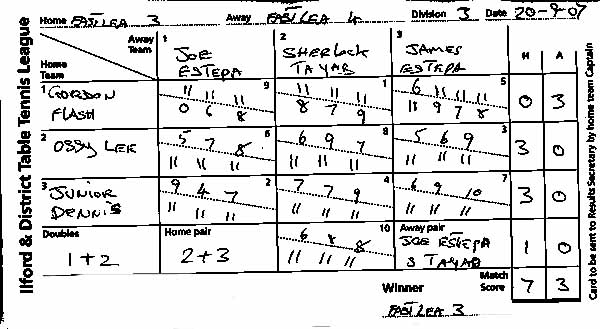 Home EASTLEA 3 Away EASTLEA 4 Division 3 Date 20-9-07
Ilford & District Table Tennis League
Away Team
Home Team
1 JOE ESTEPA
2 SHERLOCK TAYAB
3 JAMES ESTEPA
H A
1 GORDON FLASH
9
11 11 11
0 6 8
1
11 11 11
8 7 9
5
6 11 11 11
11 9 7 8
0 3
2 OSSY LEE
6
5 7 8
11 11 11
8
6 9 7
11 11 11
3
5 6 9
11 11 11
3 0
3 JUNIOR DENNIS
2
9 4 7
11 11 11
4
7 7 9
11 11 11
7
6 9 10
11 11 11
3 0
Doubles
1+2
Home pair
2+3
10
6 8 8
11 11 11
Away pair
JOE ESTEPA
S TAYAB
1 0
Winner
EASTLEA 3
Match Score
7 3
Card to be sent to Results Secretary by home team Captain